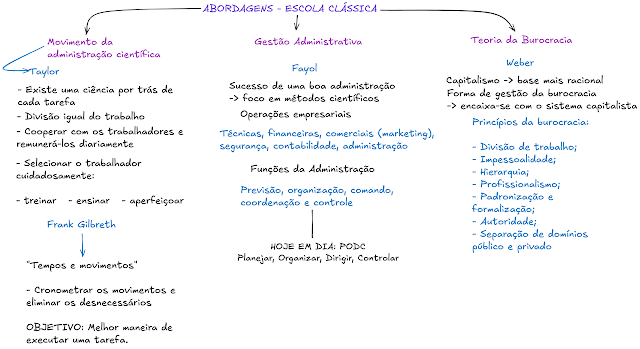 ABORDAGENS - ESCOLA CLÁSSICA
Movimento da
administração científica
Taylor
- Existe uma ciência por trás de
cada tarefa
- Divisão igual do trabalho
- Cooperar com os trabalhadores e
remunerá-los diariamente
- Selecionar o trabalhador
cuidadosamente:
- treinar - ensinar - aperfeiçoar
Frank Gilbreth
"Tempos e movimentos"
- Cronometrar os movimentos e
eliminar os desnecessários
OBJETIVO: Melhor maneira de
executar uma tarefa.
Gestão Administrativa
Fayol
Sucesso de uma boa administração
-> foco em métodos científicos
Operações empresariais
Técnicas, financeiras, comerciais (marketing),
segurança, contabilidade, administração
Funções da Administração
Previsão, organização, comando,
coordenação e controle
HOJE EM DIA: PODC
Planejar, Organizar, Dirigir, Controlar
Teoria da Burocracia
Weber
Capitalismo -> base mais racional
Forma de gestão da burocracia
-> encaixa-se com o sistema capitalista
Princípios da burocracia:
- Divisão de trabalho;
- Impessoalidade;
- Hierarquia;
- Profissionalismo;
- Padronização e
formalização;
- Autoridade;
- Separação de domínios
público e privado